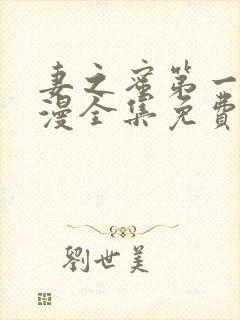 妻之蜜第一
漫全集免費
劉世美